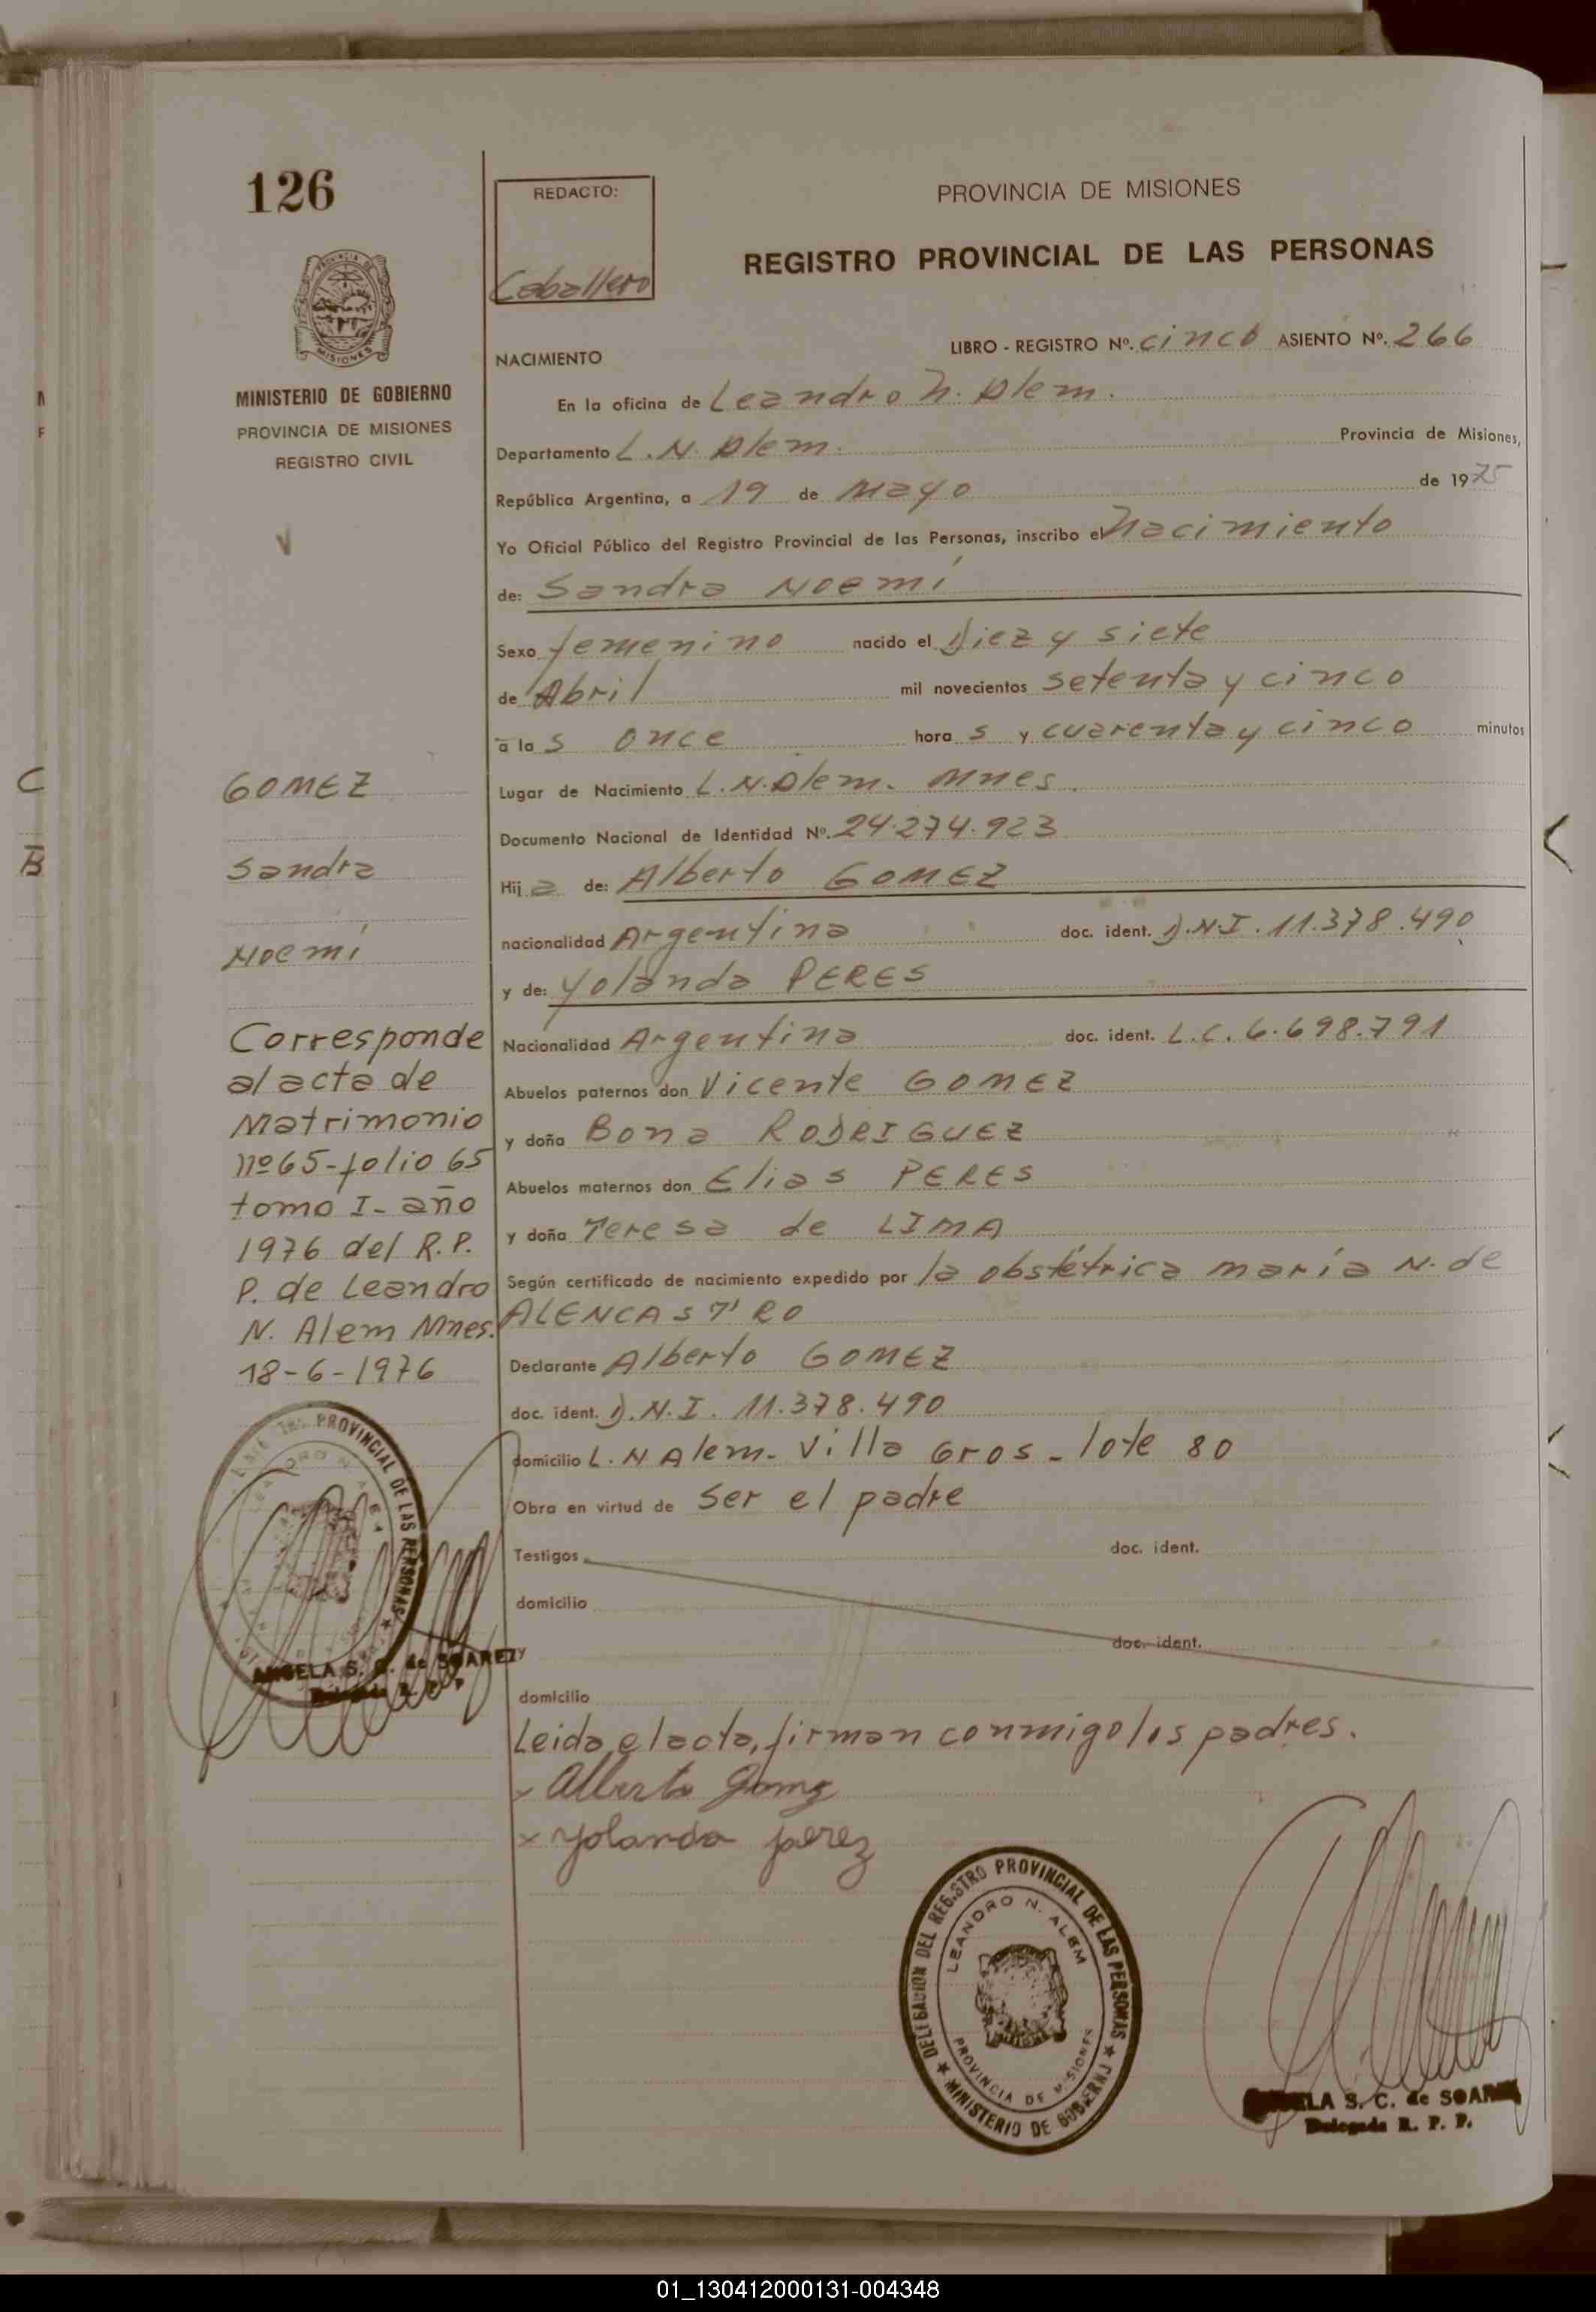 126
REDACTO:
Caballero
PROVINCIA DE MISIONES
REGISTRO PROVINCIAL DE LAS PERSONAS
MISIONES
MINISTERIO DE GOBIERNO
PROVINCIA DE MISIONES
REGISTRO CIVIL
NACIMIENTO
LIBRO - REGISTRO Nº. cinco ASIENTO Nº. 266
En la oficina de Leandro N. Alem.
Departamento L. N. Alem. Provincia de Misiones,
República Argentina, a 19 de Mayo de 1975
Yo Oficial Público del Registro Provincial de las Personas, inscribo el Nacimiento
de: Sandra Noemí
Sexo femenino nacido el Diez y siete
de Abril mil novecientos setenta y cinco
a las once horas y cuarenta y cinco minutos
Lugar de Nacimiento L. N. Alem. Mnes.
Documento Nacional de Identidad Nº. 24.274.923
Hija de: Alberto GOMEZ
nacionalidad Argentina doc. ident. D.N.I. 11.378.490
y de: Yolanda PERES
Nacionalidad Argentina doc. ident. L.C. 6.698.791
Abuelos paternos don Vicente GOMEZ
y doña Bona RODRIGUEZ
Abuelos maternos don Elias PERES
y doña Teresa de LIMA
Según certificado de nacimiento expedido por la obstétrica maría N. de
ALENCASTRO
Declarante Alberto GOMEZ
doc. ident. D.N.I. 11.378.490
domicilio L. N Alem- Villa Gros - lote 80
Obra en virtud de ser el padre
Testigos doc. ident.
domicilio
y doc. ident.
domicilio
Leida el acta, firman conmigo los padres.
x Alberto Gomez
x Yolanda perez
GOMEZ
Sandra
Noemí
Corresponde
al acta de
Matrimonio
nº 65-folio 65
tomo I- año
1976 del R.P.
P. de Leandro
N. Alem Mnes.
18-6-1976
PROVINCIAL DE LAS PERSONAS
ANGELA S. C. de SOAREZ
Delegada R. P. P.
DELEGACION DEL REGISTRO PROVINCIAL DE LAS PERSONAS
MINISTERIO DE GOBIERNO
LEANDRO N. ALEM
PROVINCIA DE MISIONES
ANGELA S. C. de SOAREZ
Delegada R. P. P.
C
B
01_130412000131-004348